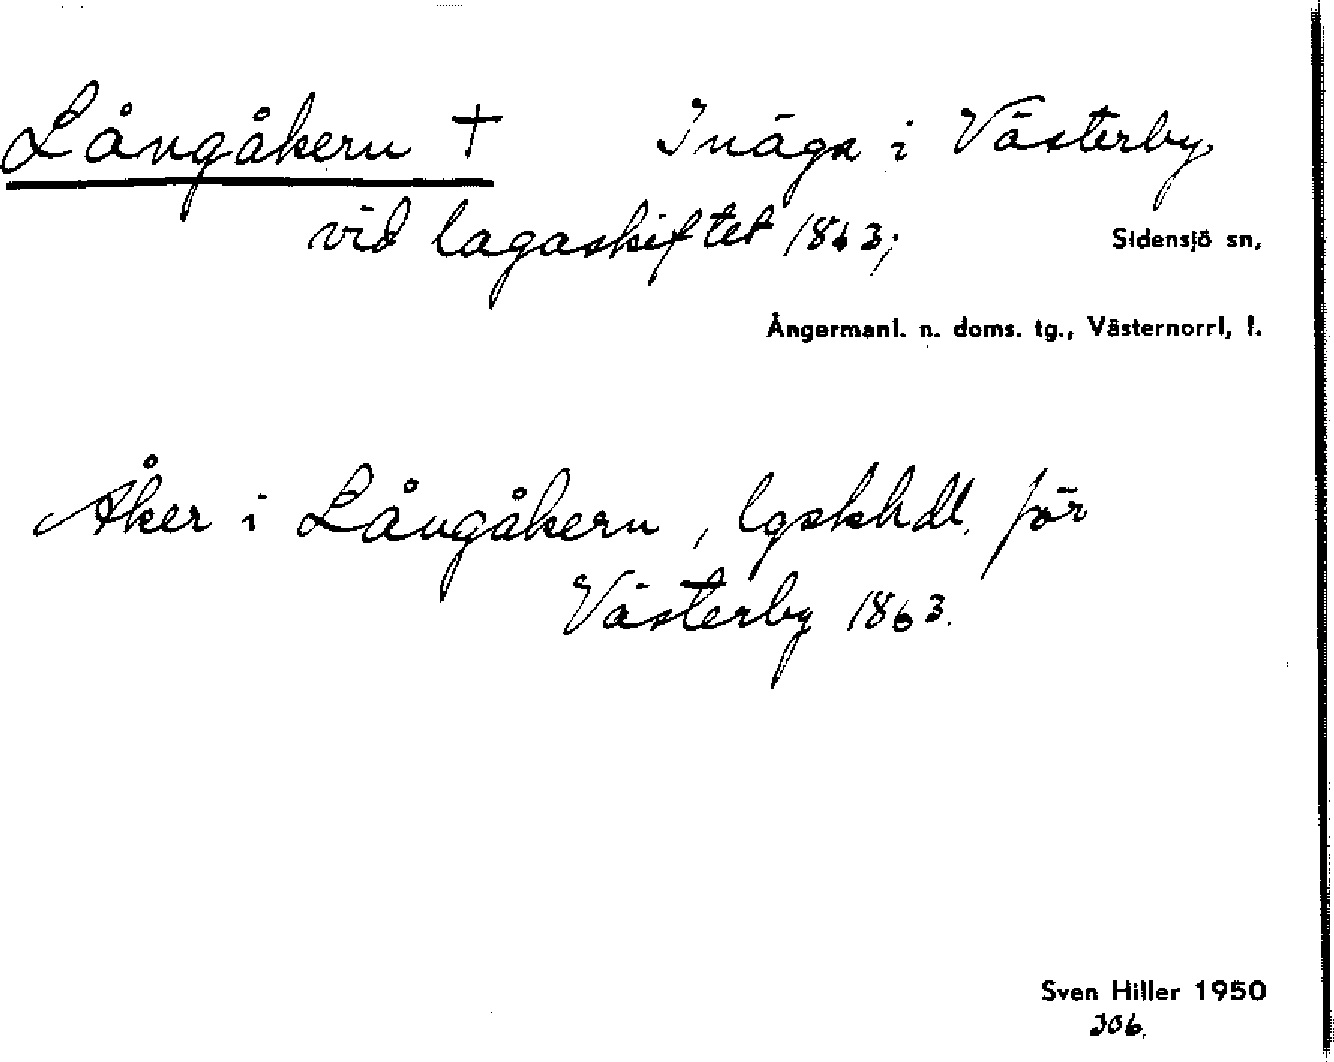 Långåkern † Inäga i Västerby
vid lagaskiftet 1863;
Sidensjö sn,
Ångermanl. n. doms. tg., Västernorrl, l.
Åker i Långåkern, lgskhdl. för
Västerby 1863.
Sven Hiller 1950
306.